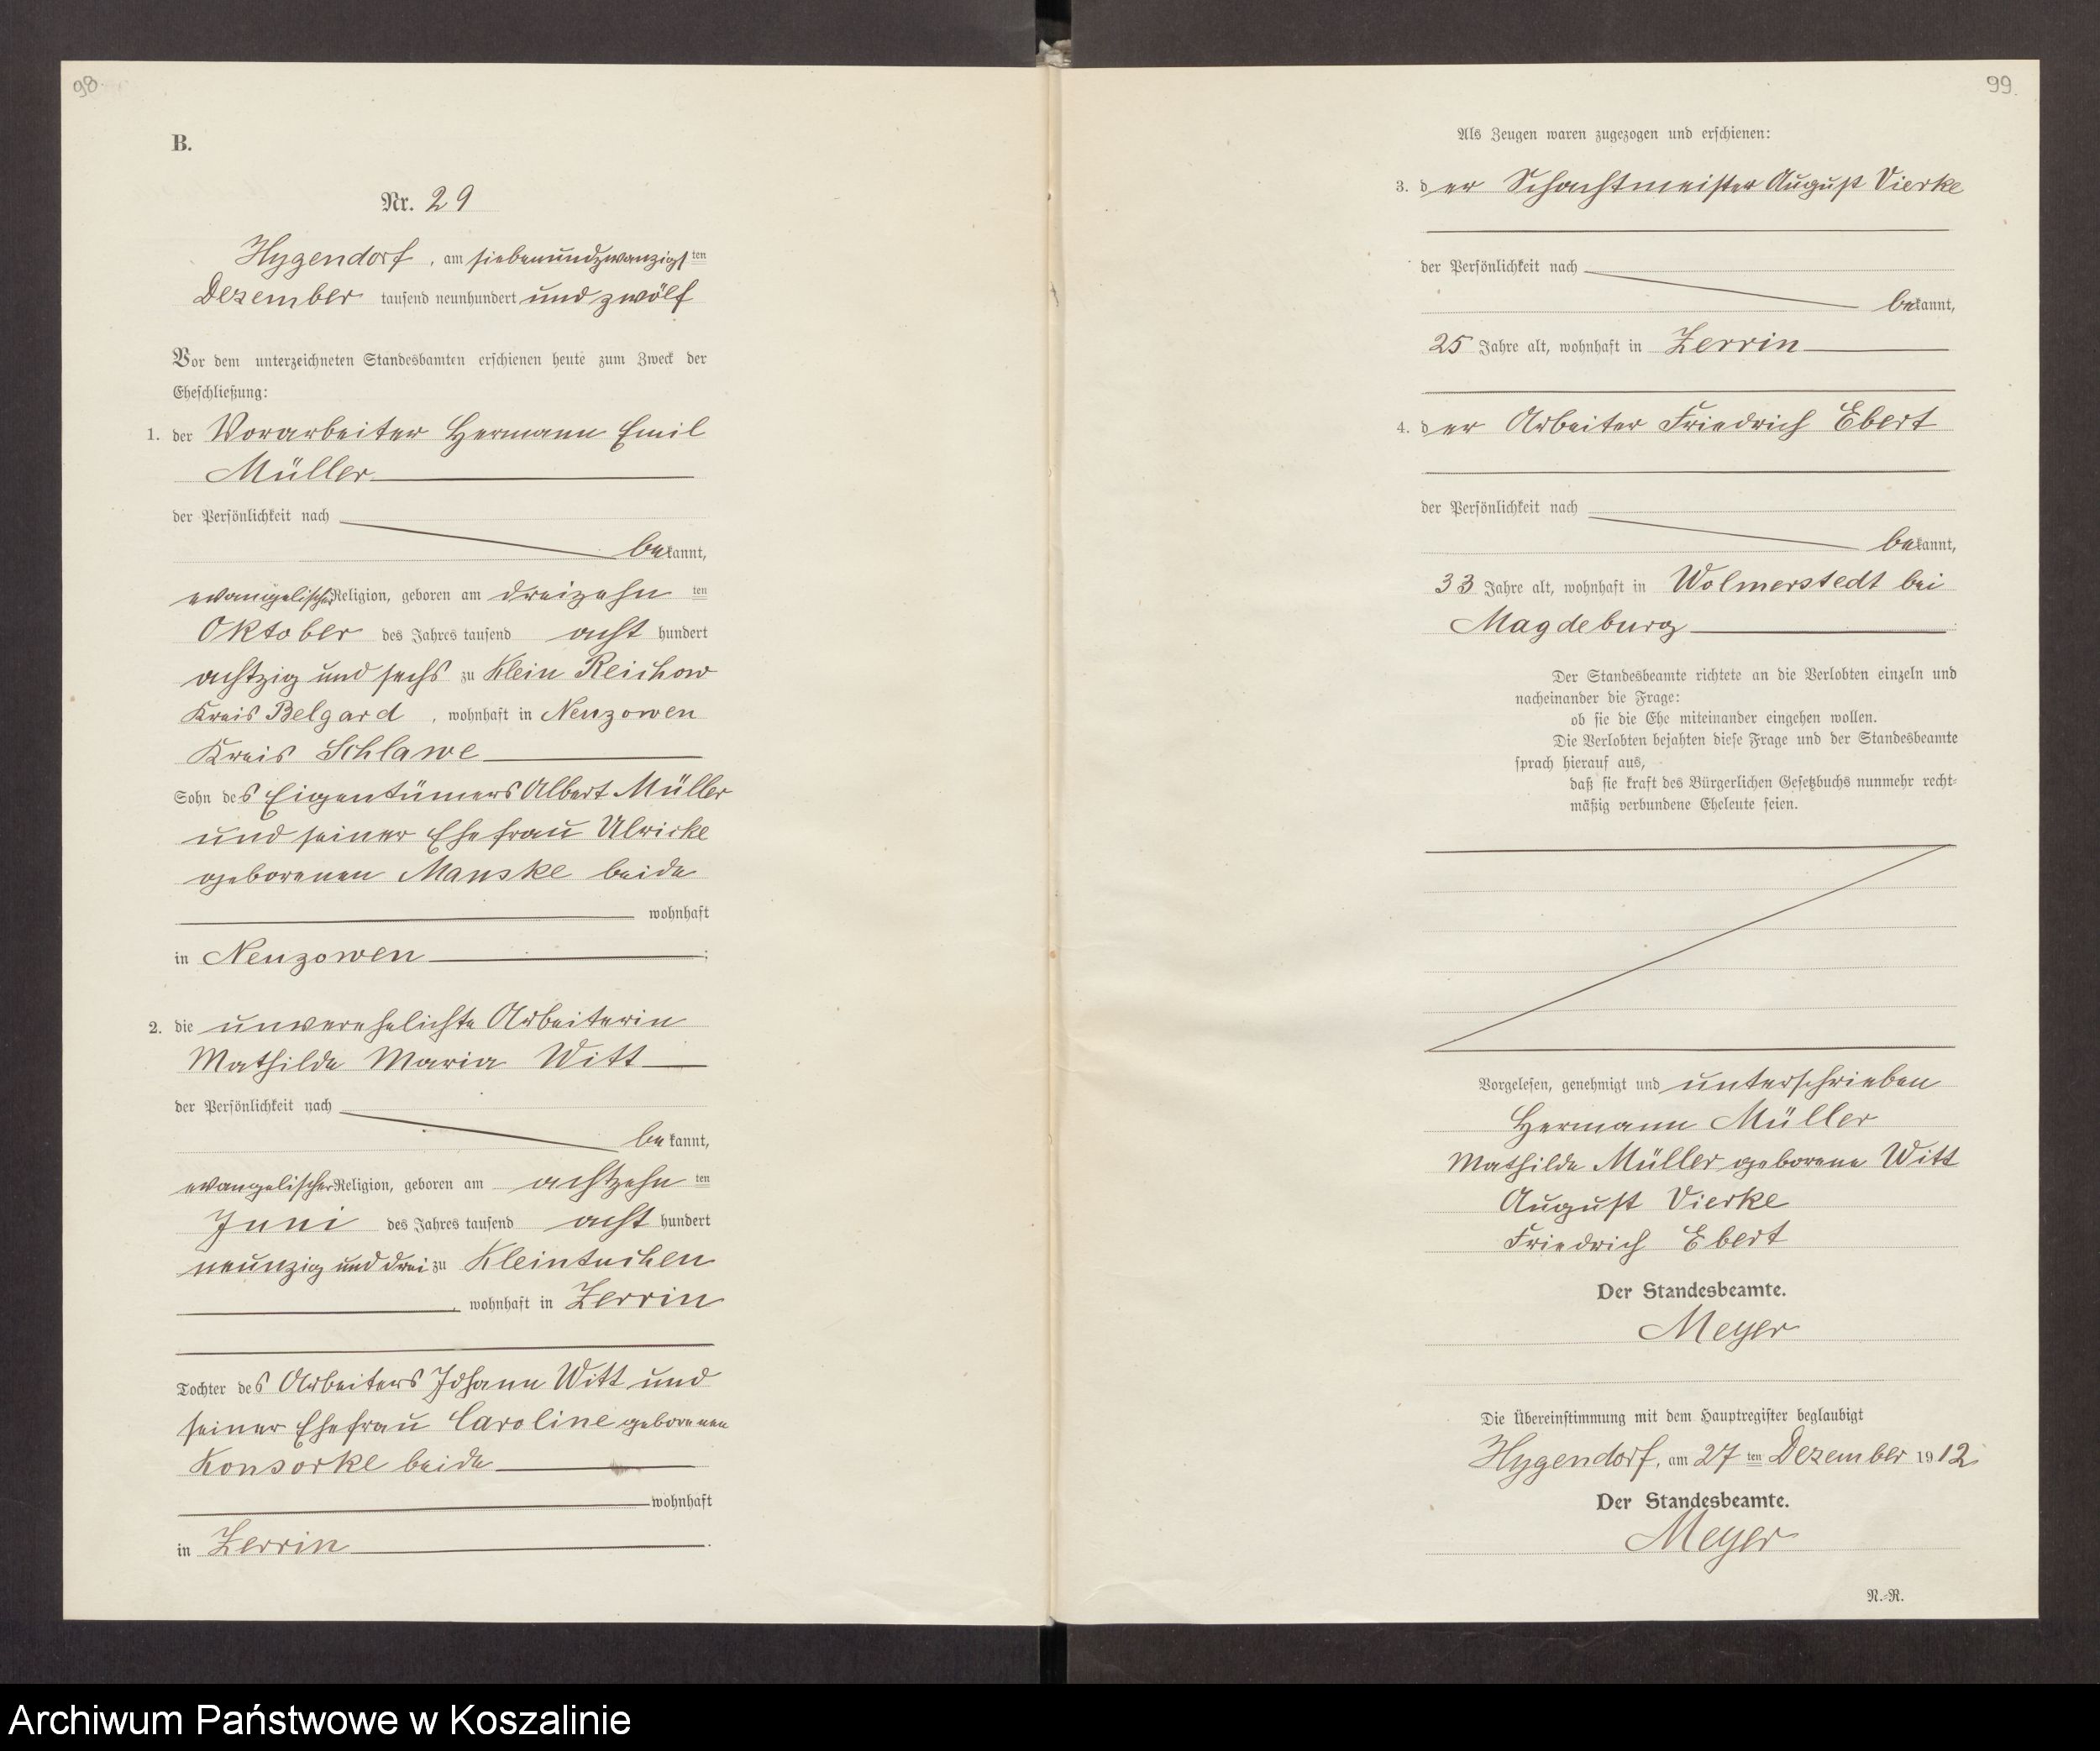 98.
B.
Nr. 29
Hygendorf, am siebenundzwanzigsten
Dezember tausend neunhundert und zwölf
Vor dem unterzeichneten Standesbamten erschienen heute zum Zweck der
Eheschließung:
1. der Vorarbeiter Hermann Emil
Müller
der Persönlichkeit nach
bekannt,
evangelischer Religion, geboren am dreizehn ten
Oktober des Jahres tausend acht hundert
achtzig und sechs zu Klein Reichow
Kreis Belgard, wohnhaft in Neuzowen
Kreis Schlawe
Sohn des Eigentümers Albert Müller
und seiner Ehefrau Ulricke
geborenen Manske beide
wohnhaft
in Neuzowen;
2. die unverehelichte Arbeiterin
Mathilde Maria Witt
der Persönlichkeit nach
bekannt,
evangelischer Religion, geboren am achtzehn ten
Juni des Jahres tausend acht hundert
neunzig und drei zu Kleintuchen
, wohnhaft in Zerrin
Tochter des Arbeiters Johann Witt und
seiner Ehefrau Caroline geborenen
Konsorke beide
wohnhaft
in Zerrin.
99.
Als Zeugen waren zugezogen und erschienen:
3. der Schachtmeister August Vierke
der Persönlichkeit nach
bekannt,
25 Jahre alt, wohnhaft in Zerrin
4. der Arbeiter Friedrich Ebert
der Persönlichkeit nach
bekannt,
33 Jahre alt, wohnhaft in Wolmerstedt bei
Magdeburg
Der Standesbeamte richtete an die Verlobten einzeln und
nacheinander die Frage:
ob sie die Ehe miteinander eingehen wollen.
Die Verlobten bejahten diese Frage und der Standesbeamte
sprach hierauf aus,
daß sie kraft des Bürgerlichen Gesetzbuchs nunmehr recht-
mäßig verbundene Eheleute seien.
Vorgelesen, genehmigt und unterschrieben
Hermann Müller
Mathilde Müller geborene Witt
August Vierke
Friedrich Ebert
Der Standesbeamte.
Meyer
Die Übereinstimmung mit dem Hauptregister beglaubigt
Hygendorf, am 27 ten Dezember 1912
Der Standesbeamte.
Meyer
N.-R.
Archiwum Państwowe w Koszalinie